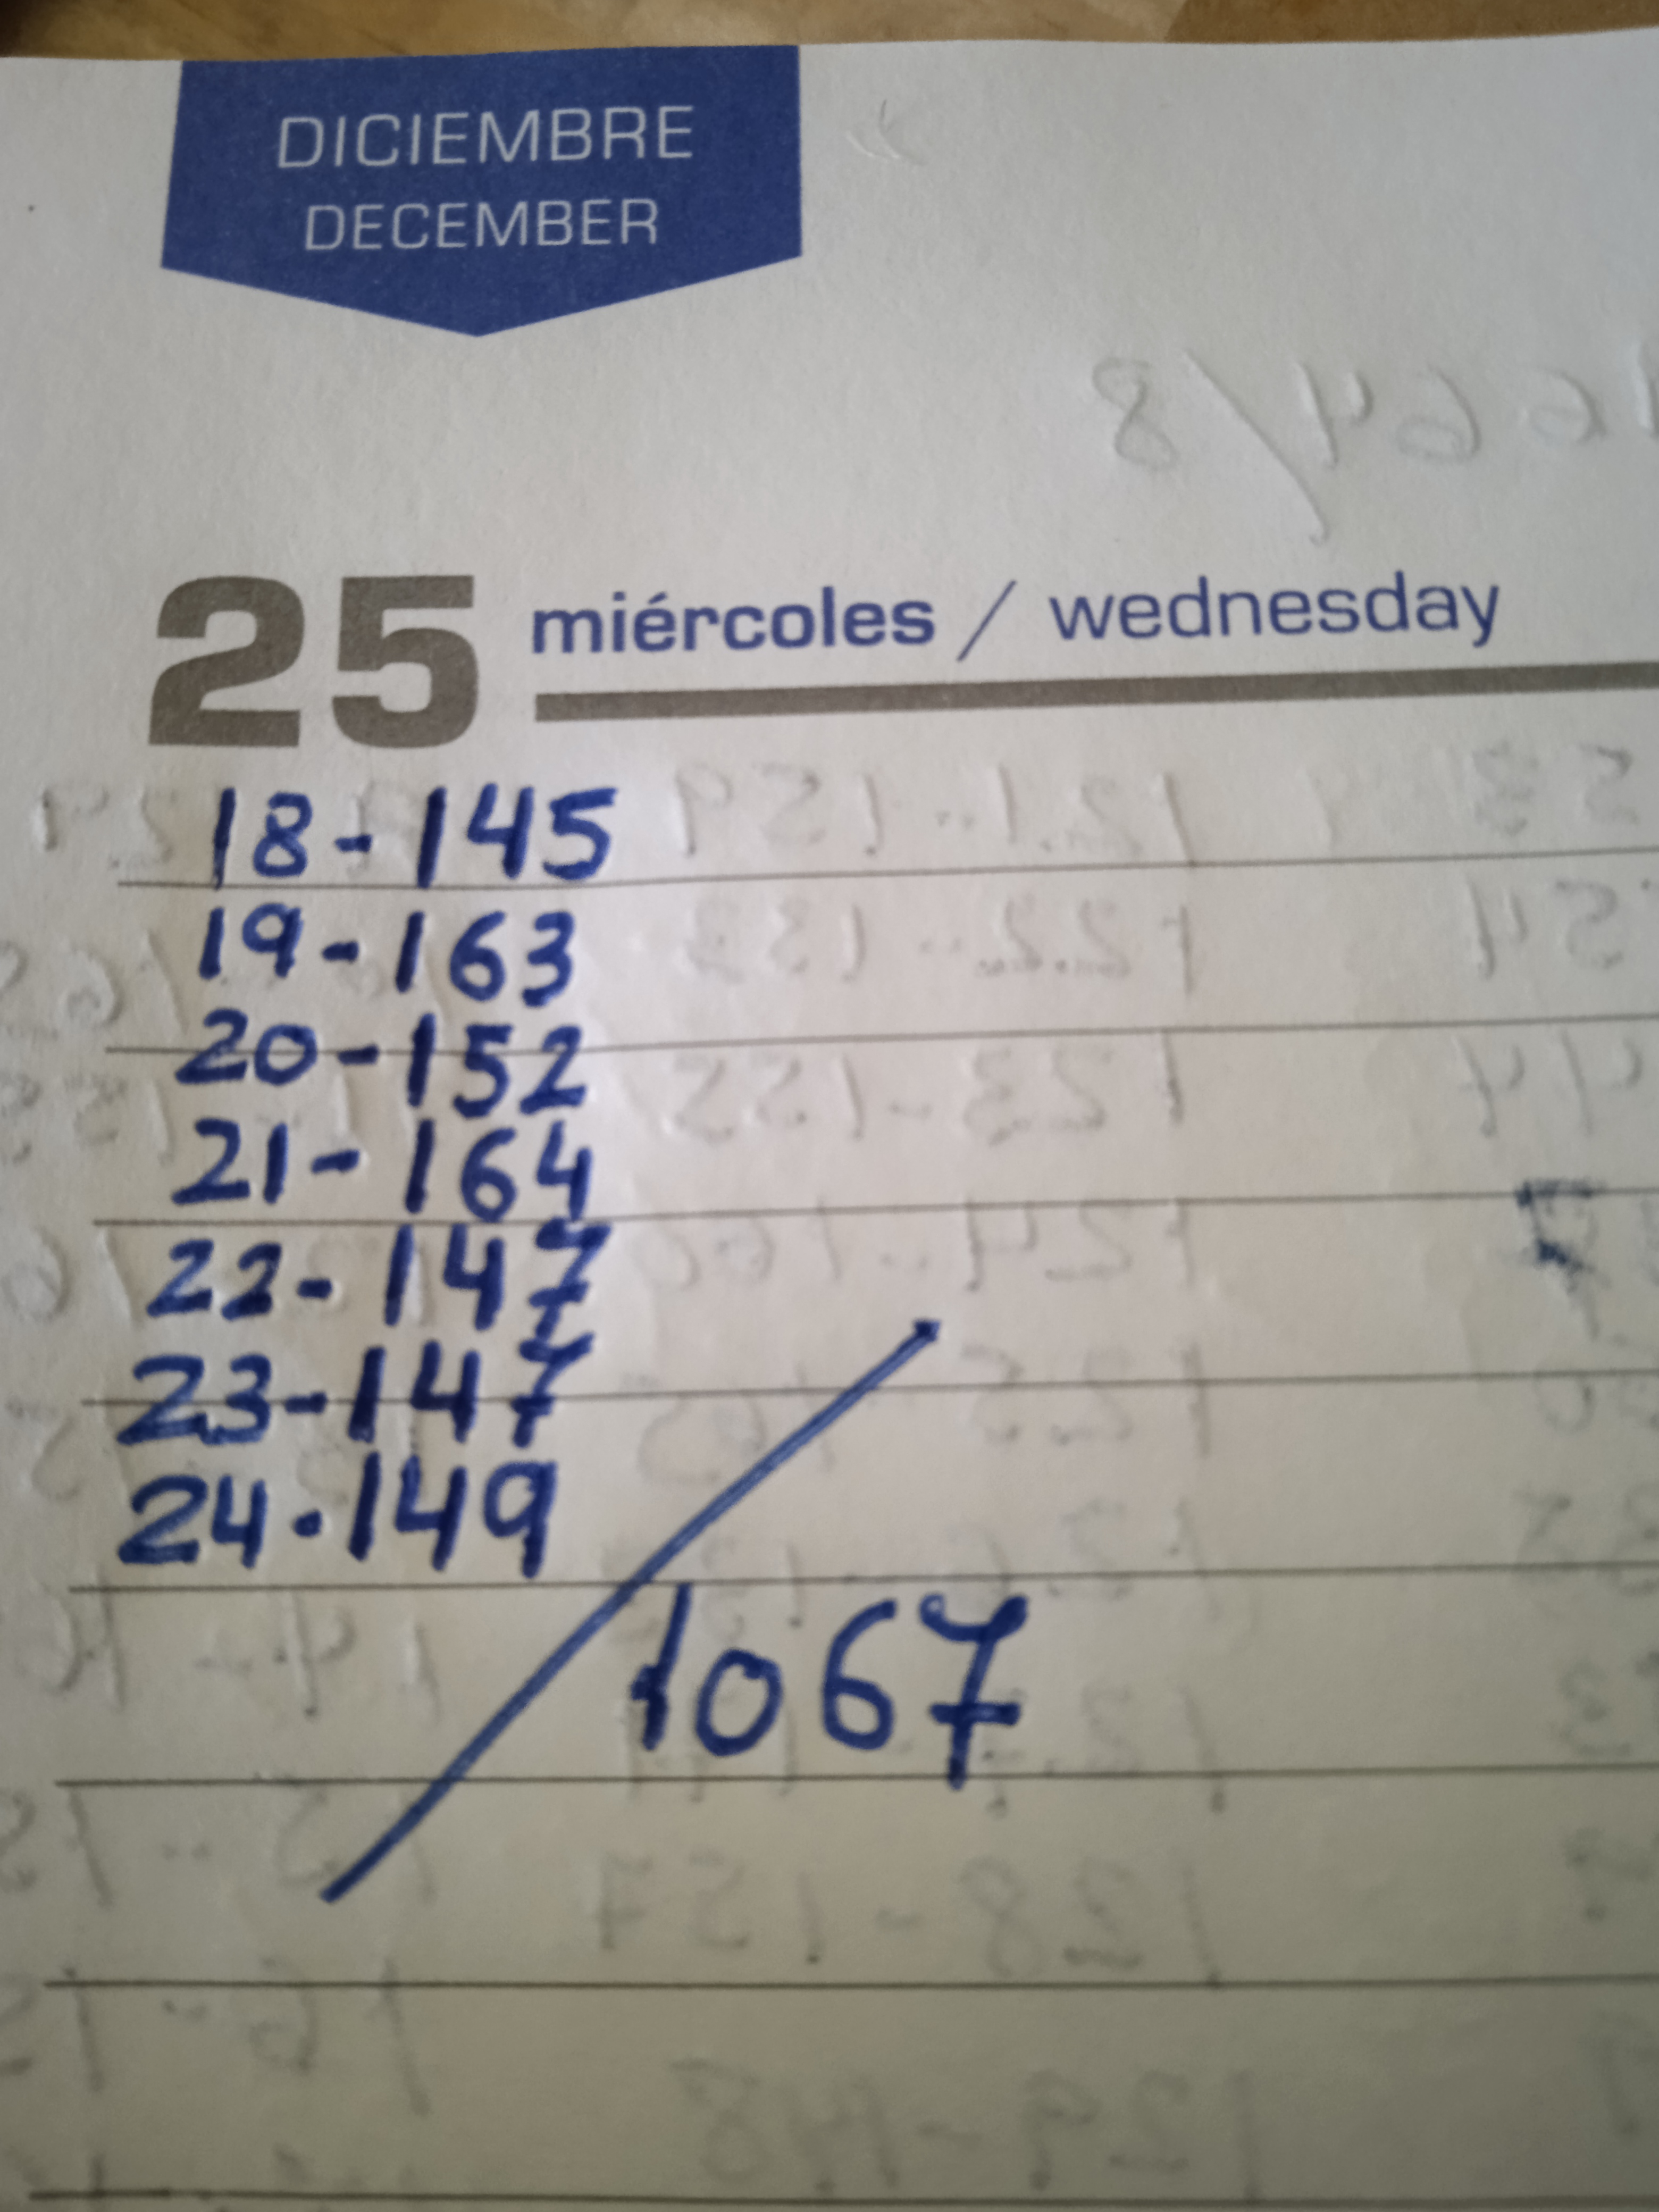 DICIEMBRE
DECEMBER
25 miércoles / wednesday
18-145
19-163
20-152
21-164
22-147
23-147
24.149
1067